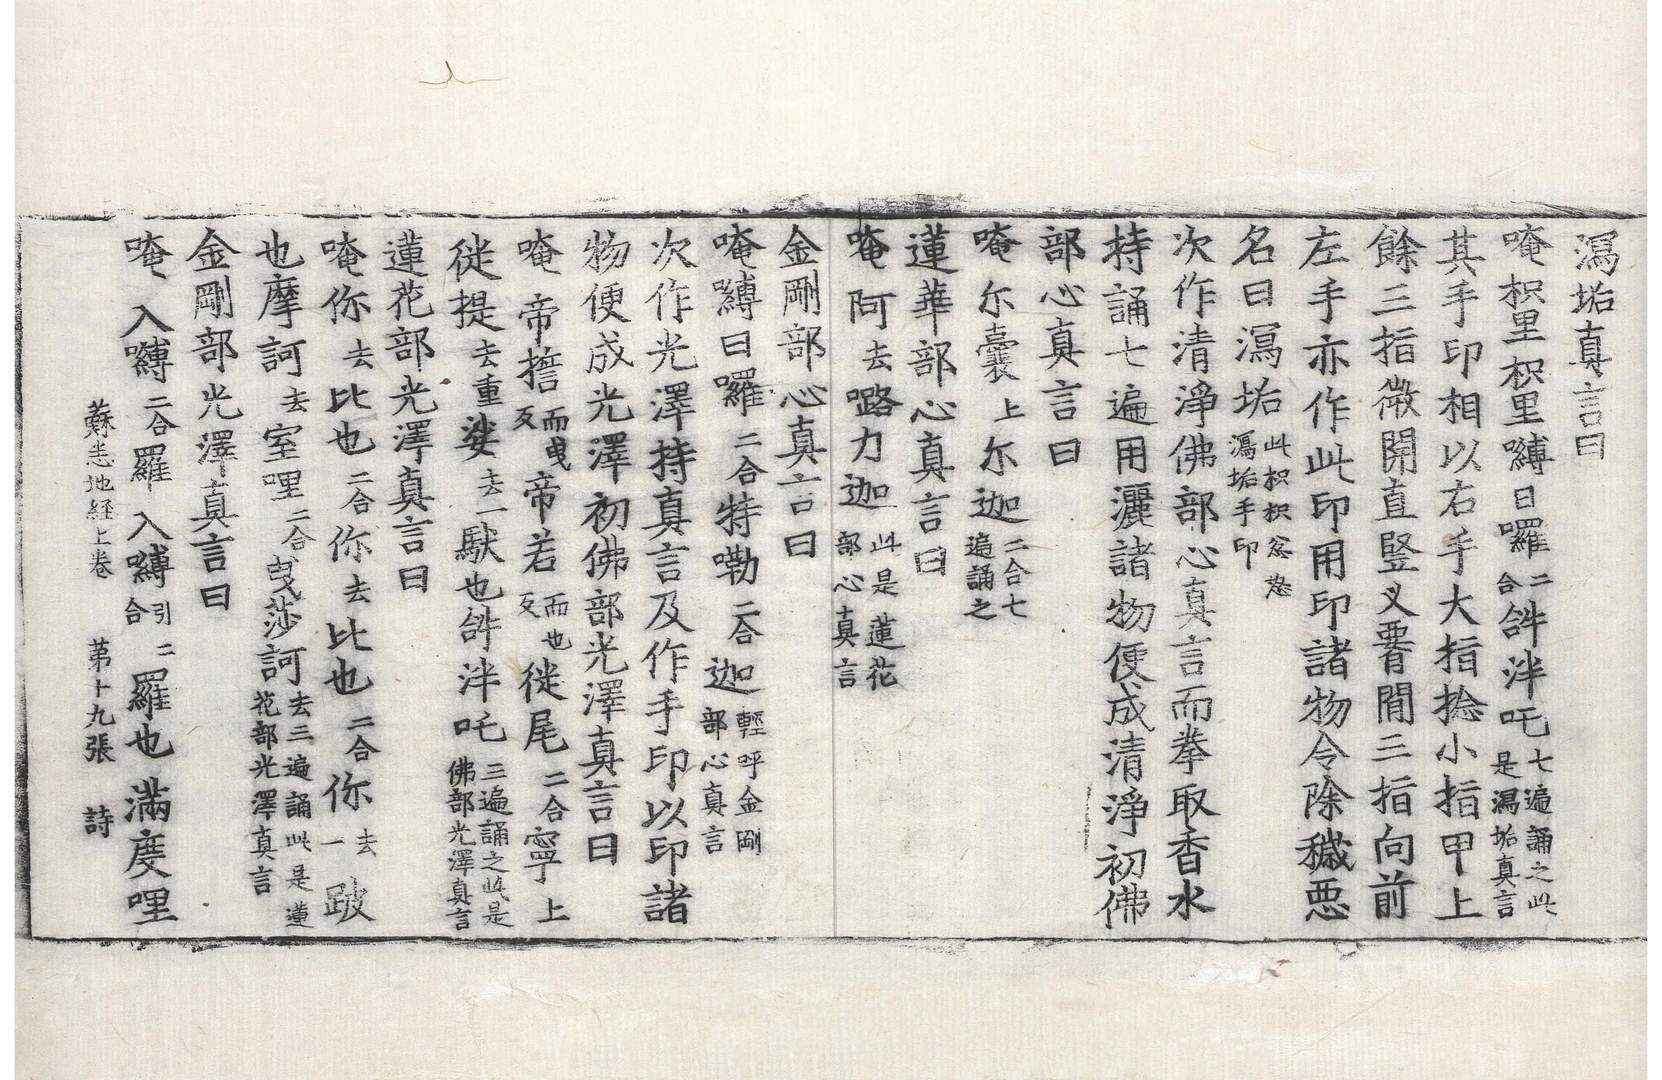 㵼垢真言曰
唵枳里枳里嚩日囉二合𤙖泮吒七遍誦之此是㵼垢真言
其手印相以右手大指捻小指甲上
餘三指微開直竪叉𦝫間三指向前
左手亦作此印用印諸物令除穢惡
名曰㵼垢此枳枳忿怒㵼垢手印
次作清淨佛部心真言而拳取香水
持誦七遍用灑諸物便成清淨初佛
部心真言曰
唵尔囊上尔迦二合七遍誦之
蓮華部心真言曰
唵阿去嚕力迦此是蓮花部心真言
金剛部心真言曰
唵嚩日囉二合特嘞二合迦輕呼金剛部心真言
次作光澤持真言及作手印以印諸
物便成光澤初佛部光澤真言曰
唵帝擔而曳反帝若而也反徙尾二合寧上
徙提去重娑去一馱也𤙖泮吒三遍誦之此是佛部光澤真言
蓮花部光澤真言曰
唵你去比也二合你去比也二合你去一跛
也摩訶去室哩二合曳莎訶去三遍誦此是蓮花部光澤真言
金剛部光澤真言曰
唵入嚩二合羅入嚩引二合羅也滿度哩
蘇悉地経上卷 苐十九張 詩